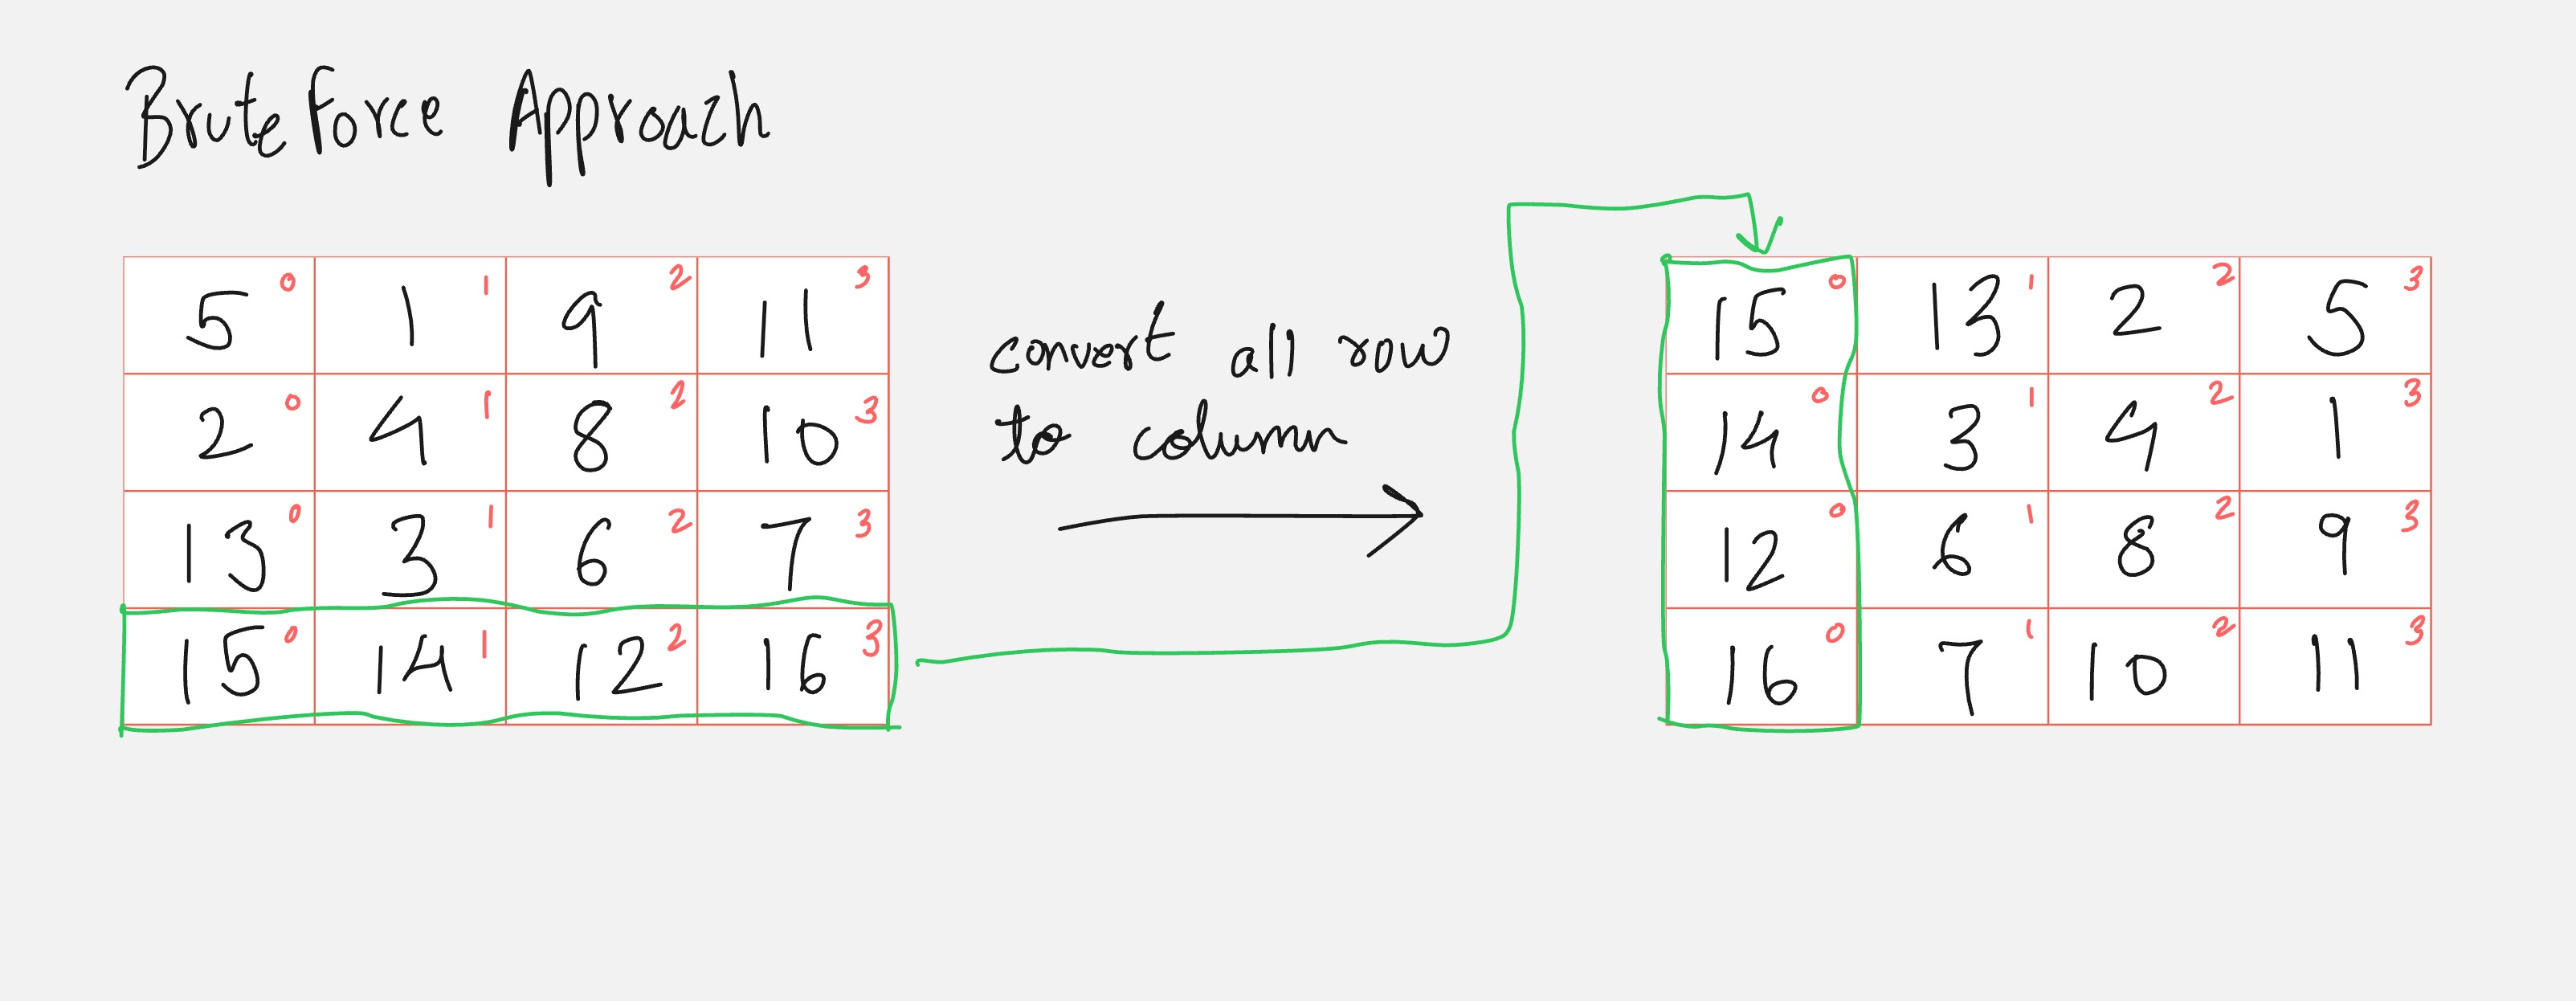 Brute Force Approach
5 0 1 1 9 2 11 3
2 0 4 1 8 2 10 3
13 0 3 1 6 2 7 3
15 0 14 1 12 2 16 3
convert all row
to column
15 0 13 1 2 2 5 3
14 0 3 1 4 2 1 3
12 0 6 1 8 2 9 3
16 0 7 1 10 2 11 3